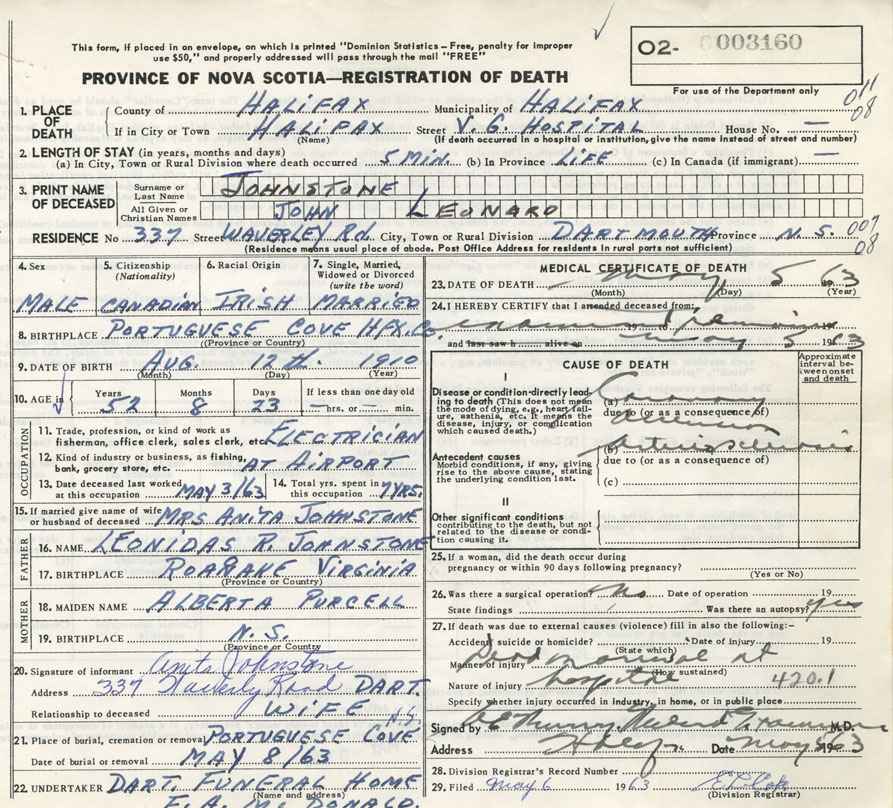 This form, if placed in an envelope, on which is printed "Dominion Statistics – Free, penalty for improper
use $50," and properly addressed will pass through the mail "FREE"
PROVINCE OF NOVA SCOTIA—REGISTRATION OF DEATH
O2- 003160
For use of the Department only
011
08
1. PLACE OF DEATH
County of HALIFAX Municipality of HALIFAX
If in City or Town HALIFAX Street V. G. HOSPITAL House No. —
(Name) (If death occurred in a hospital or institution, give the name instead of street and number)
2. LENGTH OF STAY (in years, months and days)
(a) In City, Town or Rural Division where death occurred 5 MIN. (b) In Province LIFE (c) In Canada (if immigrant) —
3. PRINT NAME OF DECEASED
Surname or Last Name JOHNSTONE
All Given or Christian Names JOHN LEONARD
RESIDENCE No 337 Street WAVERLEY Rd. City, Town or Rural Division DARTMOUTH Province N. S. 007
08
(Residence means usual place of abode. Post Office Address for residents in rural parts not sufficient)
4. Sex 5. Citizenship (Nationality) 6. Racial Origin 7. Single, Married, Widowed or Divorced (write the word)
MALE CANADIAN IRISH MARRIED
8. BIRTHPLACE PORTUGUESE COVE HFX. Co.
(Province or Country)
9. DATE OF BIRTH AUG. 12th. 1910
(Month) (Day) (Year)
10. AGE in Years Months Days If less than one day old
52 8 23 — hrs. or — min.
OCCUPATION
11. Trade, profession, or kind of work as fisherman, office clerk, sales clerk, etc. ELECTRICIAN
12. Kind of industry or business, as fishing, bank, grocery store, etc. AT AIRPORT
13. Date deceased last worked at this occupation MAY 3/63 14. Total yrs. spent in this occupation 7 YRS.
15. If married give name of wife or husband of deceased MRS ANITA JOHNSTONE
FATHER
16. NAME LEONIDAS R. JOHNSTONE
17. BIRTHPLACE VIRGINIA
(Province or Country)
MOTHER
18. MAIDEN NAME ALBERTA PURCELL
19. BIRTHPLACE N. S.
(Province or Country)
20. Signature of informant Anita Johnstone
Address 337 Waverly Road DART.
N.S.
Relationship to deceased WIFE
21. Place of burial, cremation or removal PORTUGUESE COVE
Date of burial or removal MAY 8/63
22. UNDERTAKER DART. FUNERAL HOME
(Name and address)
F. A. McDONALD.
MEDICAL CERTIFICATE OF DEATH
23. DATE OF DEATH May 5 1963
(Month) (Day) (Year)
24. I HEREBY CERTIFY that I attended deceased from:
examined remains
and last saw h alive on May 5 1963
CAUSE OF DEATH
Approximate interval between onset and death
I
Disease or condition-directly leading to death (This does not mean the mode of dying, e.g., heart failure, asthenia, etc. It means the disease, injury, or complication which caused death.)
(a) Coronary
due to (or as a consequence of)
Antecedent causes
Morbid conditions, if any, giving rise to the above cause, stating the underlying condition last.
(b) Arteriosclerosis
due to (or as a consequence of)
(c)
II
Other significant conditions
contributing to the death, but not related to the disease or condition causing it.
25. If a woman, did the death occur during
pregnancy or within 90 days following pregnancy?
(Yes or No)
26. Was there a surgical operation? No Date of operation 19
State findings Was there an autopsy? yes
27. If death was due to external causes (violence) fill in also the following:–
Accident, suicide or homicide? Date of injury 19
(State which)
Dead on arrival at
Manner of injury
(How sustained)
hospital 420.1
Nature of injury
Specify whether injury occurred in industry, in home, or in public place
Signed by Medical Examiner M.D.
Address Halifax Date May 5 1963
28. Division Registrar's Record Number
29. Filed May 6 1963
(Division Registrar)